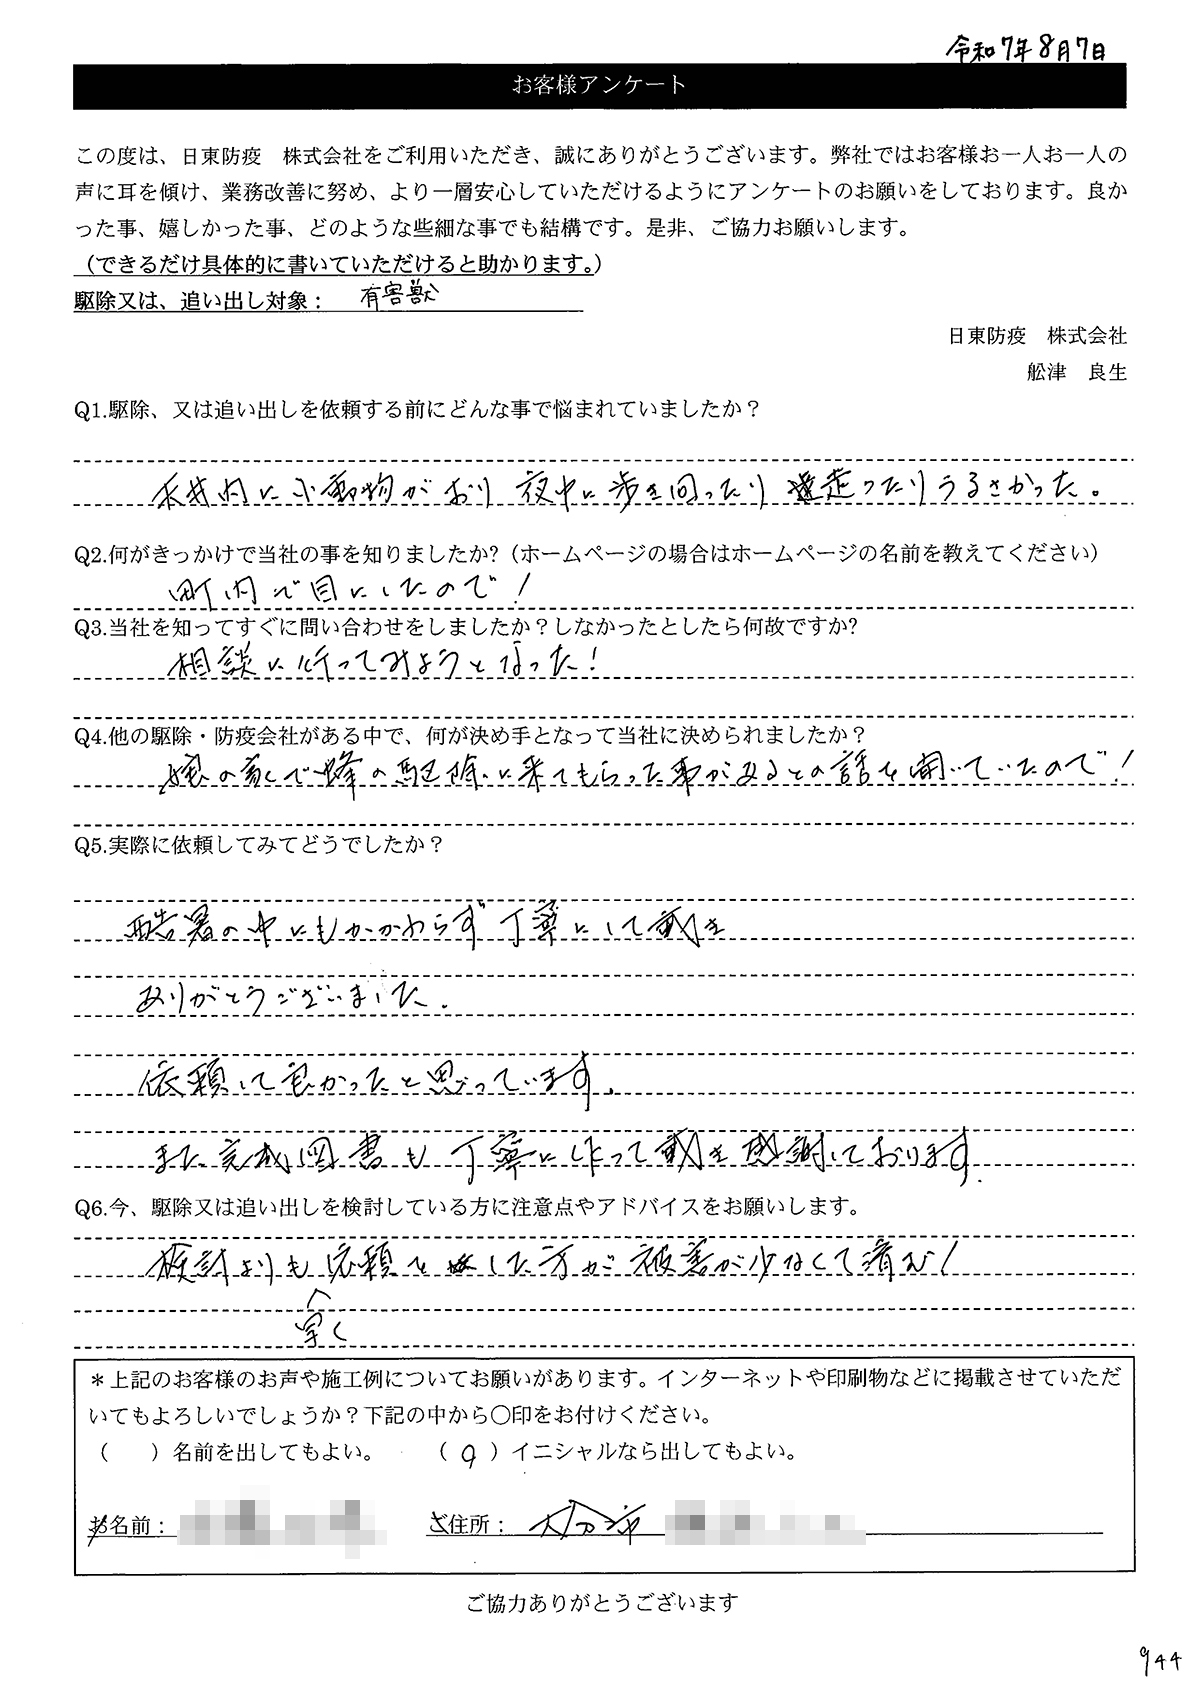 令和7年8月7日
お客様アンケート
この度は、日東防疫　株式会社をご利用いただき、誠にありがとうございます。弊社ではお客様お一人お一人の
声に耳を傾け、業務改善に努め、より一層安心していただけるようにアンケートのお願いをしております。良か
った事、嬉しかった事、どのような些細な事でも結構です。是非、ご協力お願いします。
（できるだけ具体的に書いていただけると助かります。）
駆除又は、追い出し対象：　有害獣
日東防疫　株式会社
舩津　良生
Q1.駆除、又は追い出しを依頼する前にどんな事で悩まれていましたか？
天井内に小動物がおり 夜中に歩き回ったり 走ったりうるさかった。
Q2.何がきっかけで当社の事を知りましたか?（ホームページの場合はホームページの名前を教えてください）
町内で目にしたので！
Q3.当社を知ってすぐに問い合わせをしましたか？しなかったとしたら何故ですか?
相談に行ってみようとなった！
Q4.他の駆除・防疫会社がある中で、何が決め手となって当社に決められましたか？
嫁の家で蜂の駆除に来てもらった事があるとの話を聞いていたので！
Q5.実際に依頼してみてどうでしたか？
酷暑の中にもかかわらず 丁寧にして戴き
ありがとうございました。
依頼して良かったと思っています。
また完成図書も丁寧に作って戴き感謝しております。
Q6.今、駆除又は追い出しを検討している方に注意点やアドバイスをお願いします。
検討よりも依頼を した方が 被害が少なくて済む！
早く
＊上記のお客様のお声や施工例についてお願いがあります。インターネットや印刷物などに掲載させていただ
いてもよろしいでしょうか？下記の中から〇印をお付けください。
（　　）名前を出してもよい。　　（ ○ ）イニシャルなら出してもよい。
お名前：　ご住所： 大分市
ご協力ありがとうございます
944